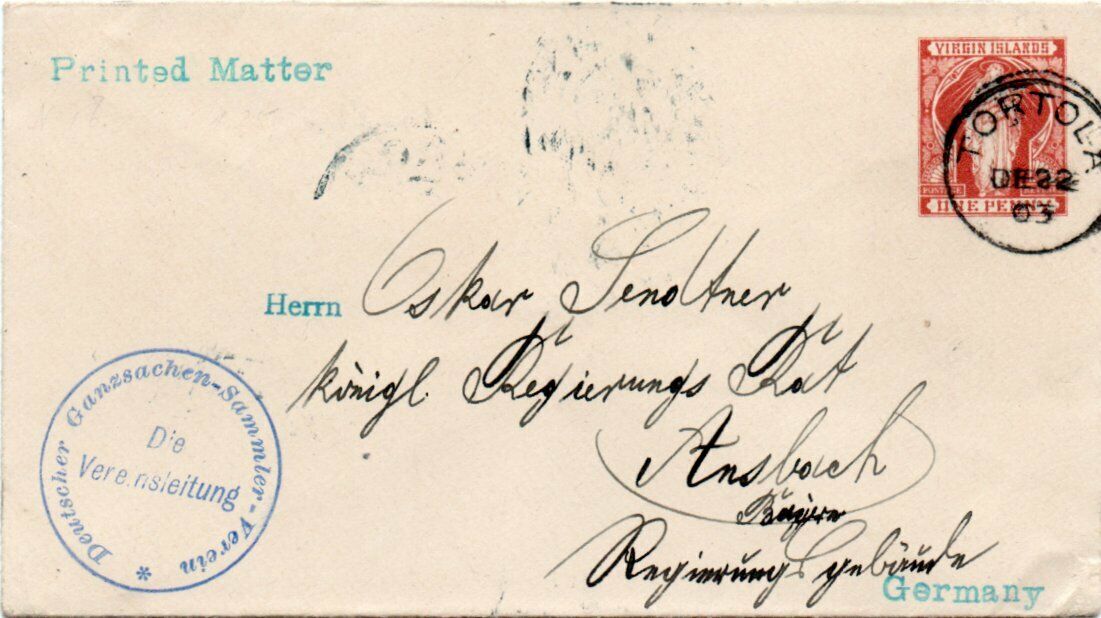 Printed Matter
VIRGIN ISLANDS
POSTAGE
ONE PENNY
TORTOLA
DE 22
03
Herrn Oskar Sendtner
königl. Regierungs Rat
Ansbach
Bayern
Regierungsgebäude
Germany
Deutscher Ganzsachen-Sammler-Verein *
Die
Vereinsleitung